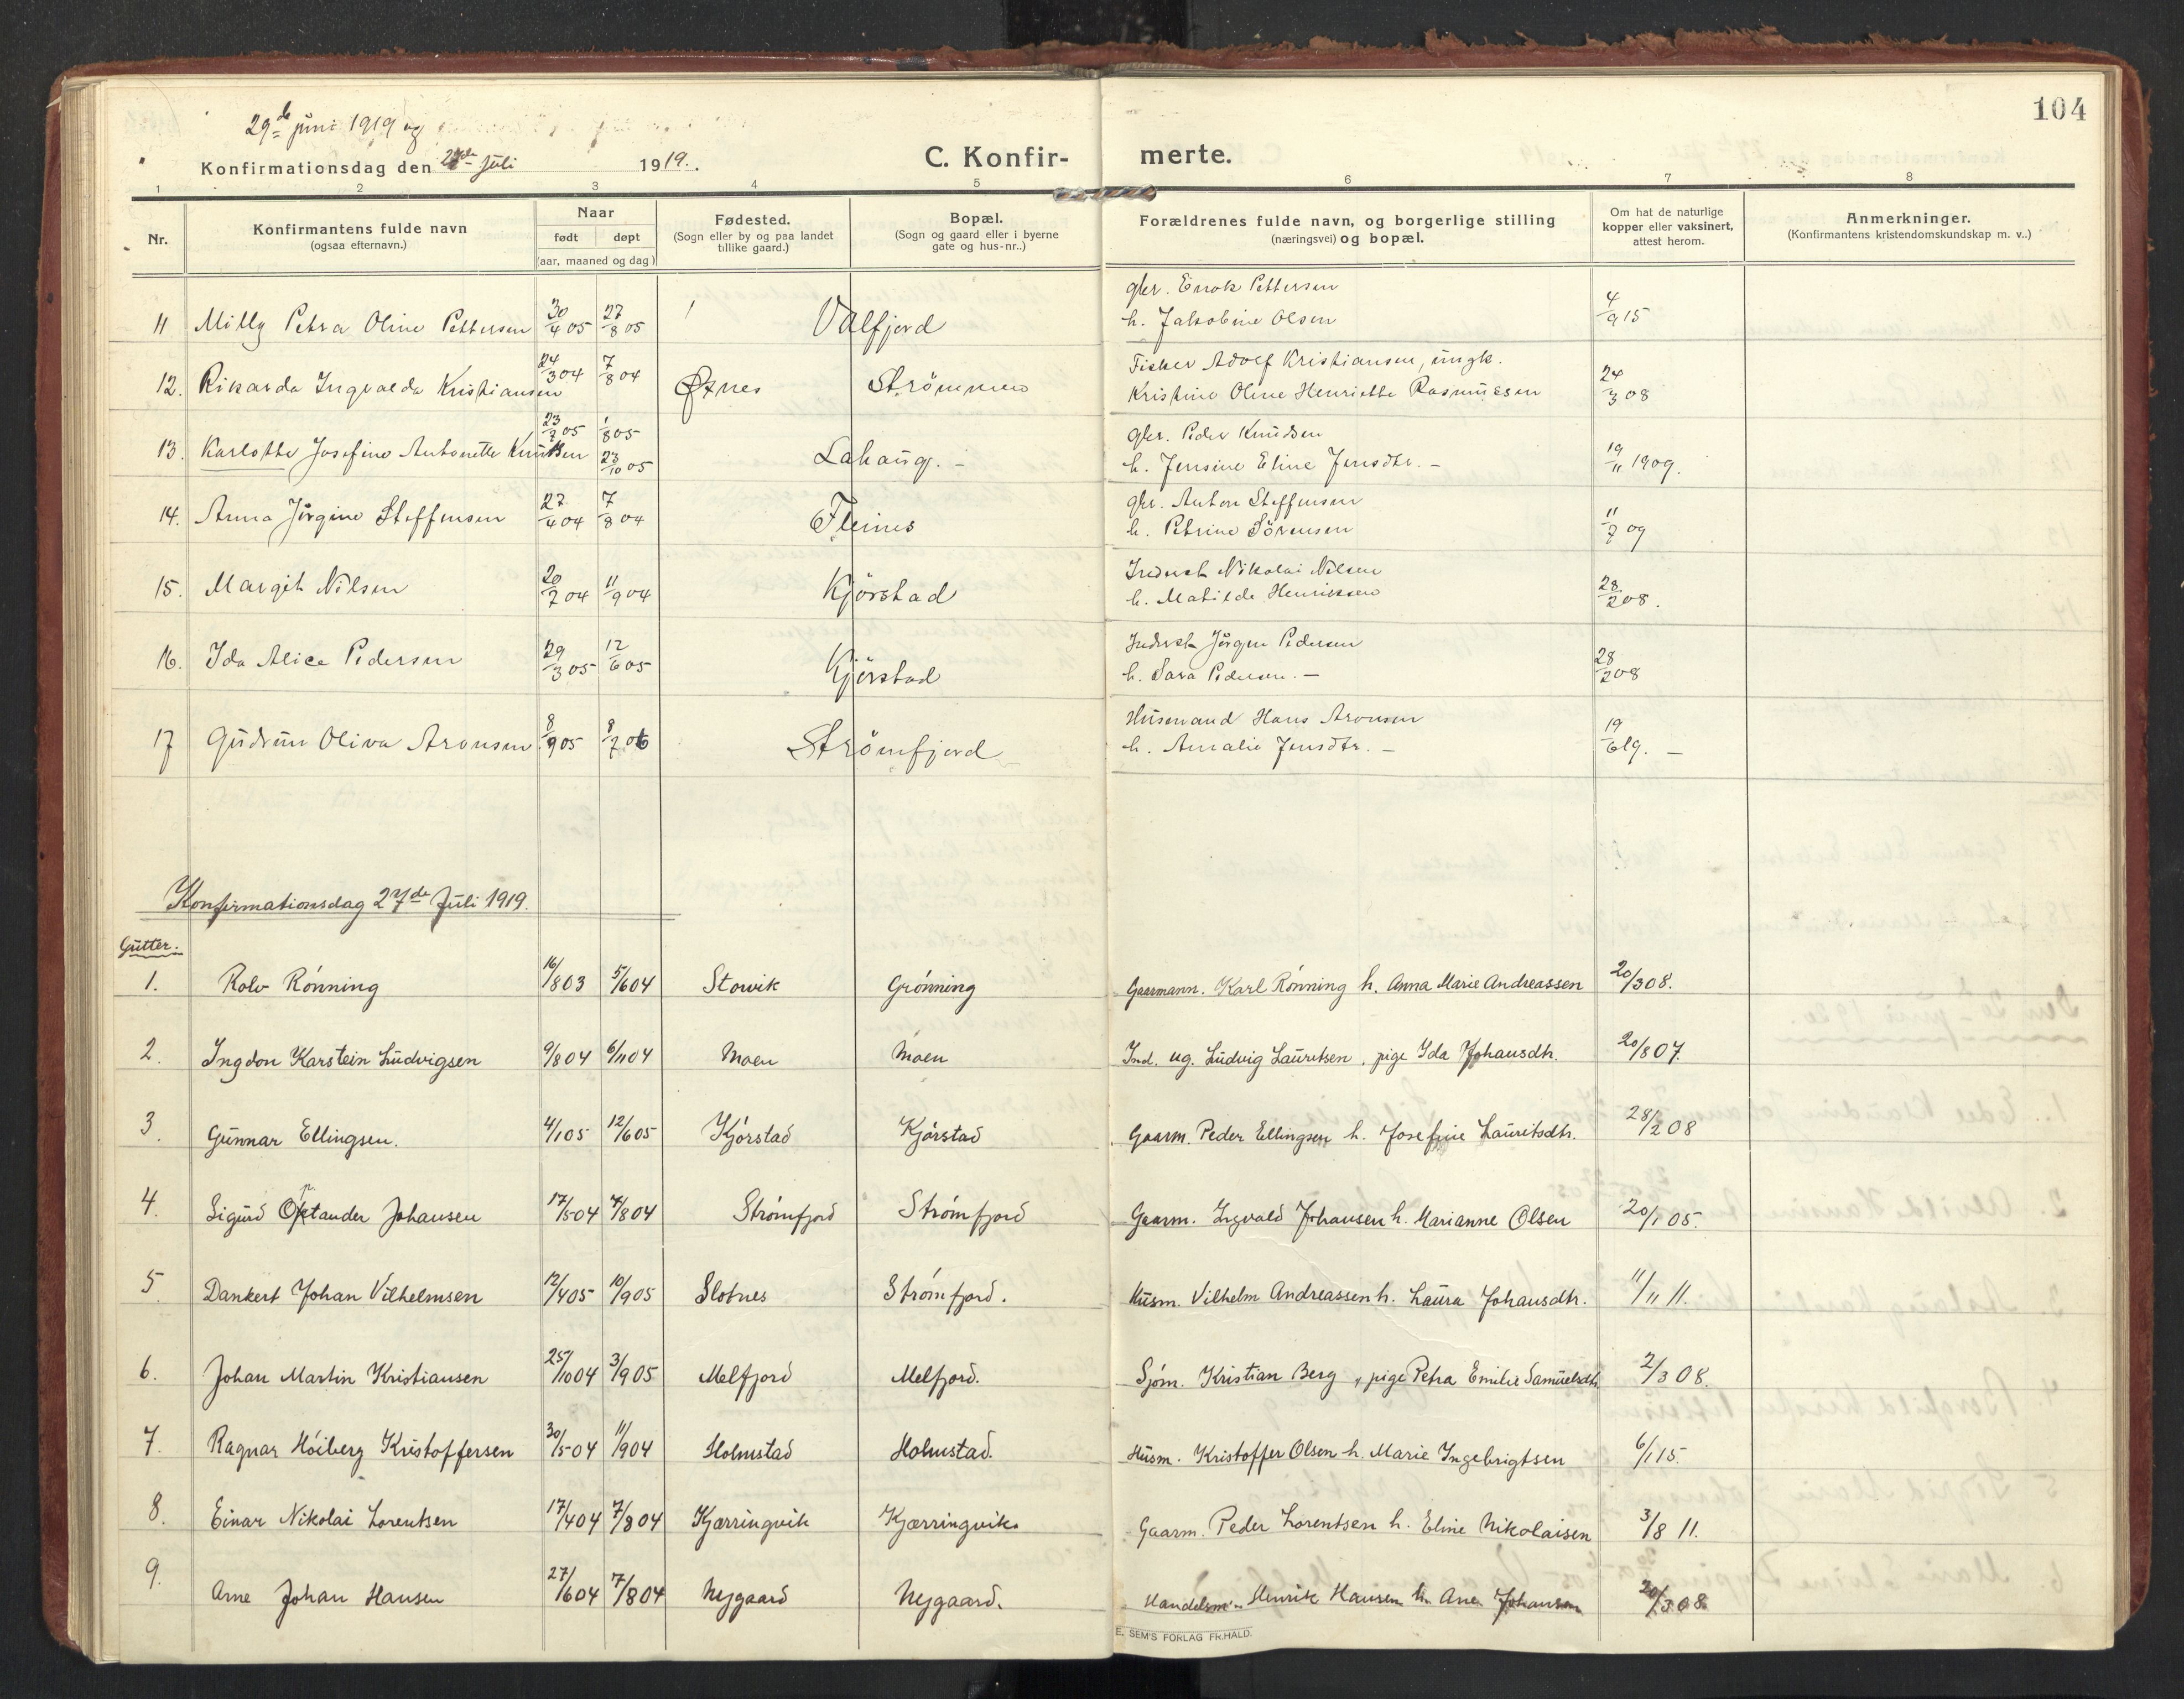 104
29de juni 1919 og
Konfirmationsdag den 27de Juli 1919.
C. Konfir- merte.
1 2 3 4 5 6 7 8
Nr.
Konfirmantens fulde navn
(ogsaa efternavn.)
Naar
født døpt
(aar, maaned og dag)
Fødested.
(Sogn eller by og paa landet
tillike gaard.)
Bopæl.
(Sogn og gaard eller i byerne
gate og hus-nr..)
Forældrenes fulde navn, og borgerlige stilling
(næringsvei) og bopæl.
Om hat de naturlige
kopper eller vaksinert,
attest herom.
Anmerkninger.
(Konfirmantens kristendomskundskap m. v..)
gbr. Enok Pettersen
11 Milly Petra Oline Pettersen 30/4 05 27/8 05 Valfjord h. Jakobine Olsen 4/9 15
Fisker Adolf Kristiansen, ungk.
12. Rikarda Ingvalda Kristiansen 24/3 04 7/8 04 Øxnes Strömmen Kristine Oline Henriette Rasmussen 24/3 08
23/7 05 1/8 05 gbr. Peder Knudsen
13. Karlotte Josefine Antonette Knutsen 23/10 05 Lahaug. - h. Jensine Eline Jensdtr. - 19/11 1909.
gbr. Anton Steffensen
14. Anna Jörgine Steffensen 27/4 04 7/8 04 Fleines h. Petrine Sörensen 11/7 09
Inderst Nikolai Nilsen
15. Margit Nilsen 20/7 04 11/9 04 Kjörstad h. Matilde Henriksen 28/2 08.
Inderst Jörgen Pedersen
16. Ida Alice Pedersen 29/3 05 12/6 05 Kjörstad h. Sara Pedersen. - 28/2 08
Husmand Hans Aronsen
17 Gudrun Oliva Aronsen 8/9 05 8/7 06 Strömfjord h. Amalie Jensdtr. - 19/6 19. -
Konfirmationsdag 27de Juli 1919.
Gutter.
1. Rolv Rónning 16/8 03 5/6 04 Stowik Grónning Gaarmann. Karl Rónning h. Anna Marie Andreassen 20/3 08.
2. Ingdon Karstein Ludvigsen 9/8 04 6/11 04 Moen Moen Ind. ug. Ludvig Lauritsen, pige Ida Johansdtr. 20/8 07.
3. Gunnar Ellingsen. 4/1 05 12/6 05 Kjórstad Kjórstad Gaarm. Peder Ellingsen h. Josefine Lauritsdtr. 28/2 08
4. Sigurd Optander Johansen 17/5 04 7/8 04 Strómfjord Strómfjord Gaarm. Ingvald Johansen h. Marianne Olsen 20/1 05.
5. Dankert Johan Vilhelmsen 12/4 05 10/9 05 Slotnes Strómfjord. Husm. Vilhelm Andreassen h. Laura Johansdtr. 11/11 11.
6. Johan Martin Kristiansen 25/10 04 3/9 05 Melfjord Melfjord. Sjóm. Kristian Berg, pige Petra Emilie Samuelsdtr. 2/3 08.
7. Ragnar Hóiberg Kristoffersen 30/5 04 11/9 04 Holmstad Holmstad. Husm. Kristoffer Olsen h. Marie Ingebrigtsen 6/1 15.
8. Einar Nikolai Lorentsen 17/4 04 7/8 04 Kjærringvik Kjærringvik. Gaarm. Peder Lorentsen h. Eline Nikolaisen 3/8 11.
9. Arne Johan Hansen 27/6 04 7/8 04 Nygaard Nygaard. Handelsm. Henrik Hansen h. Ane Johansen 20/3 08.
E. SEM'S FORLAG FR.HALD.